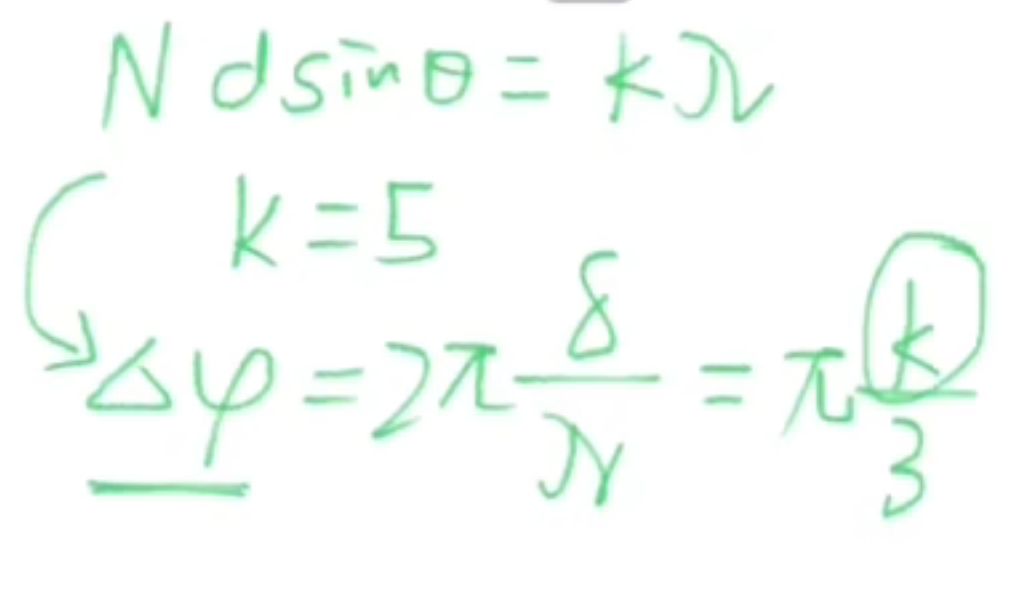 N d sinθ = kλ
k = 5
Δφ = 2π δ/λ = π k/3